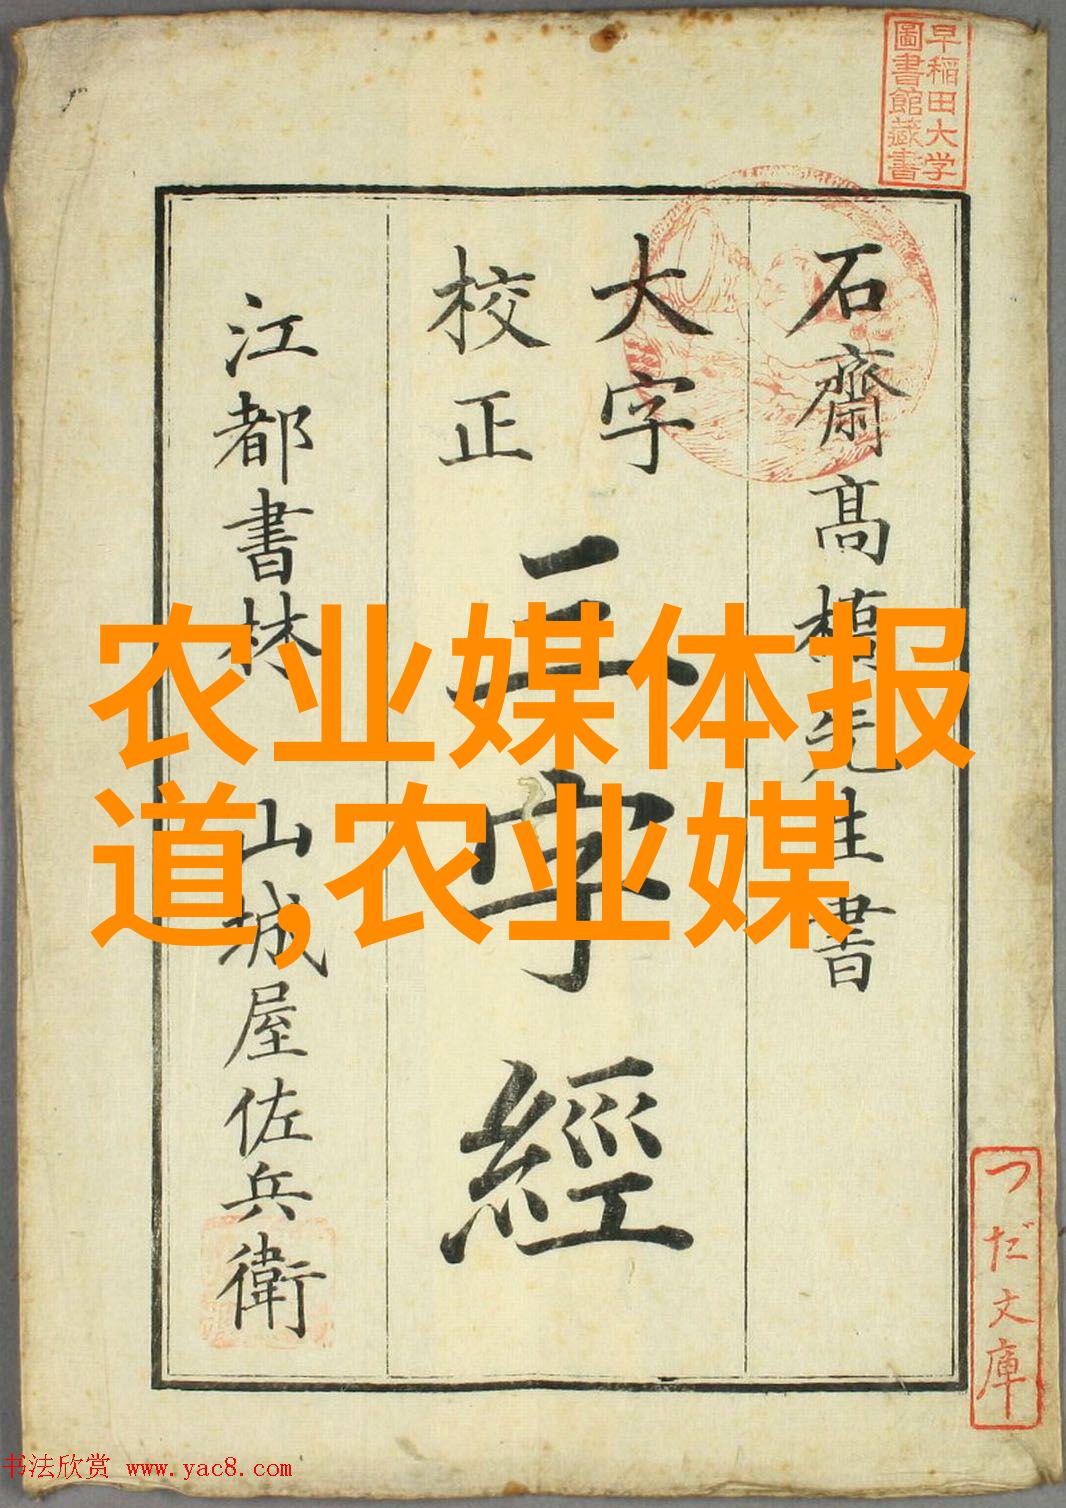 早稲田大学
圖書館藏書
石齋高橋先生書
大字
校正
三字經
江都書林 山城屋佐兵衛
农业媒体报
道,农业媒
つだ文庫
书法欣赏 www.yac8.com